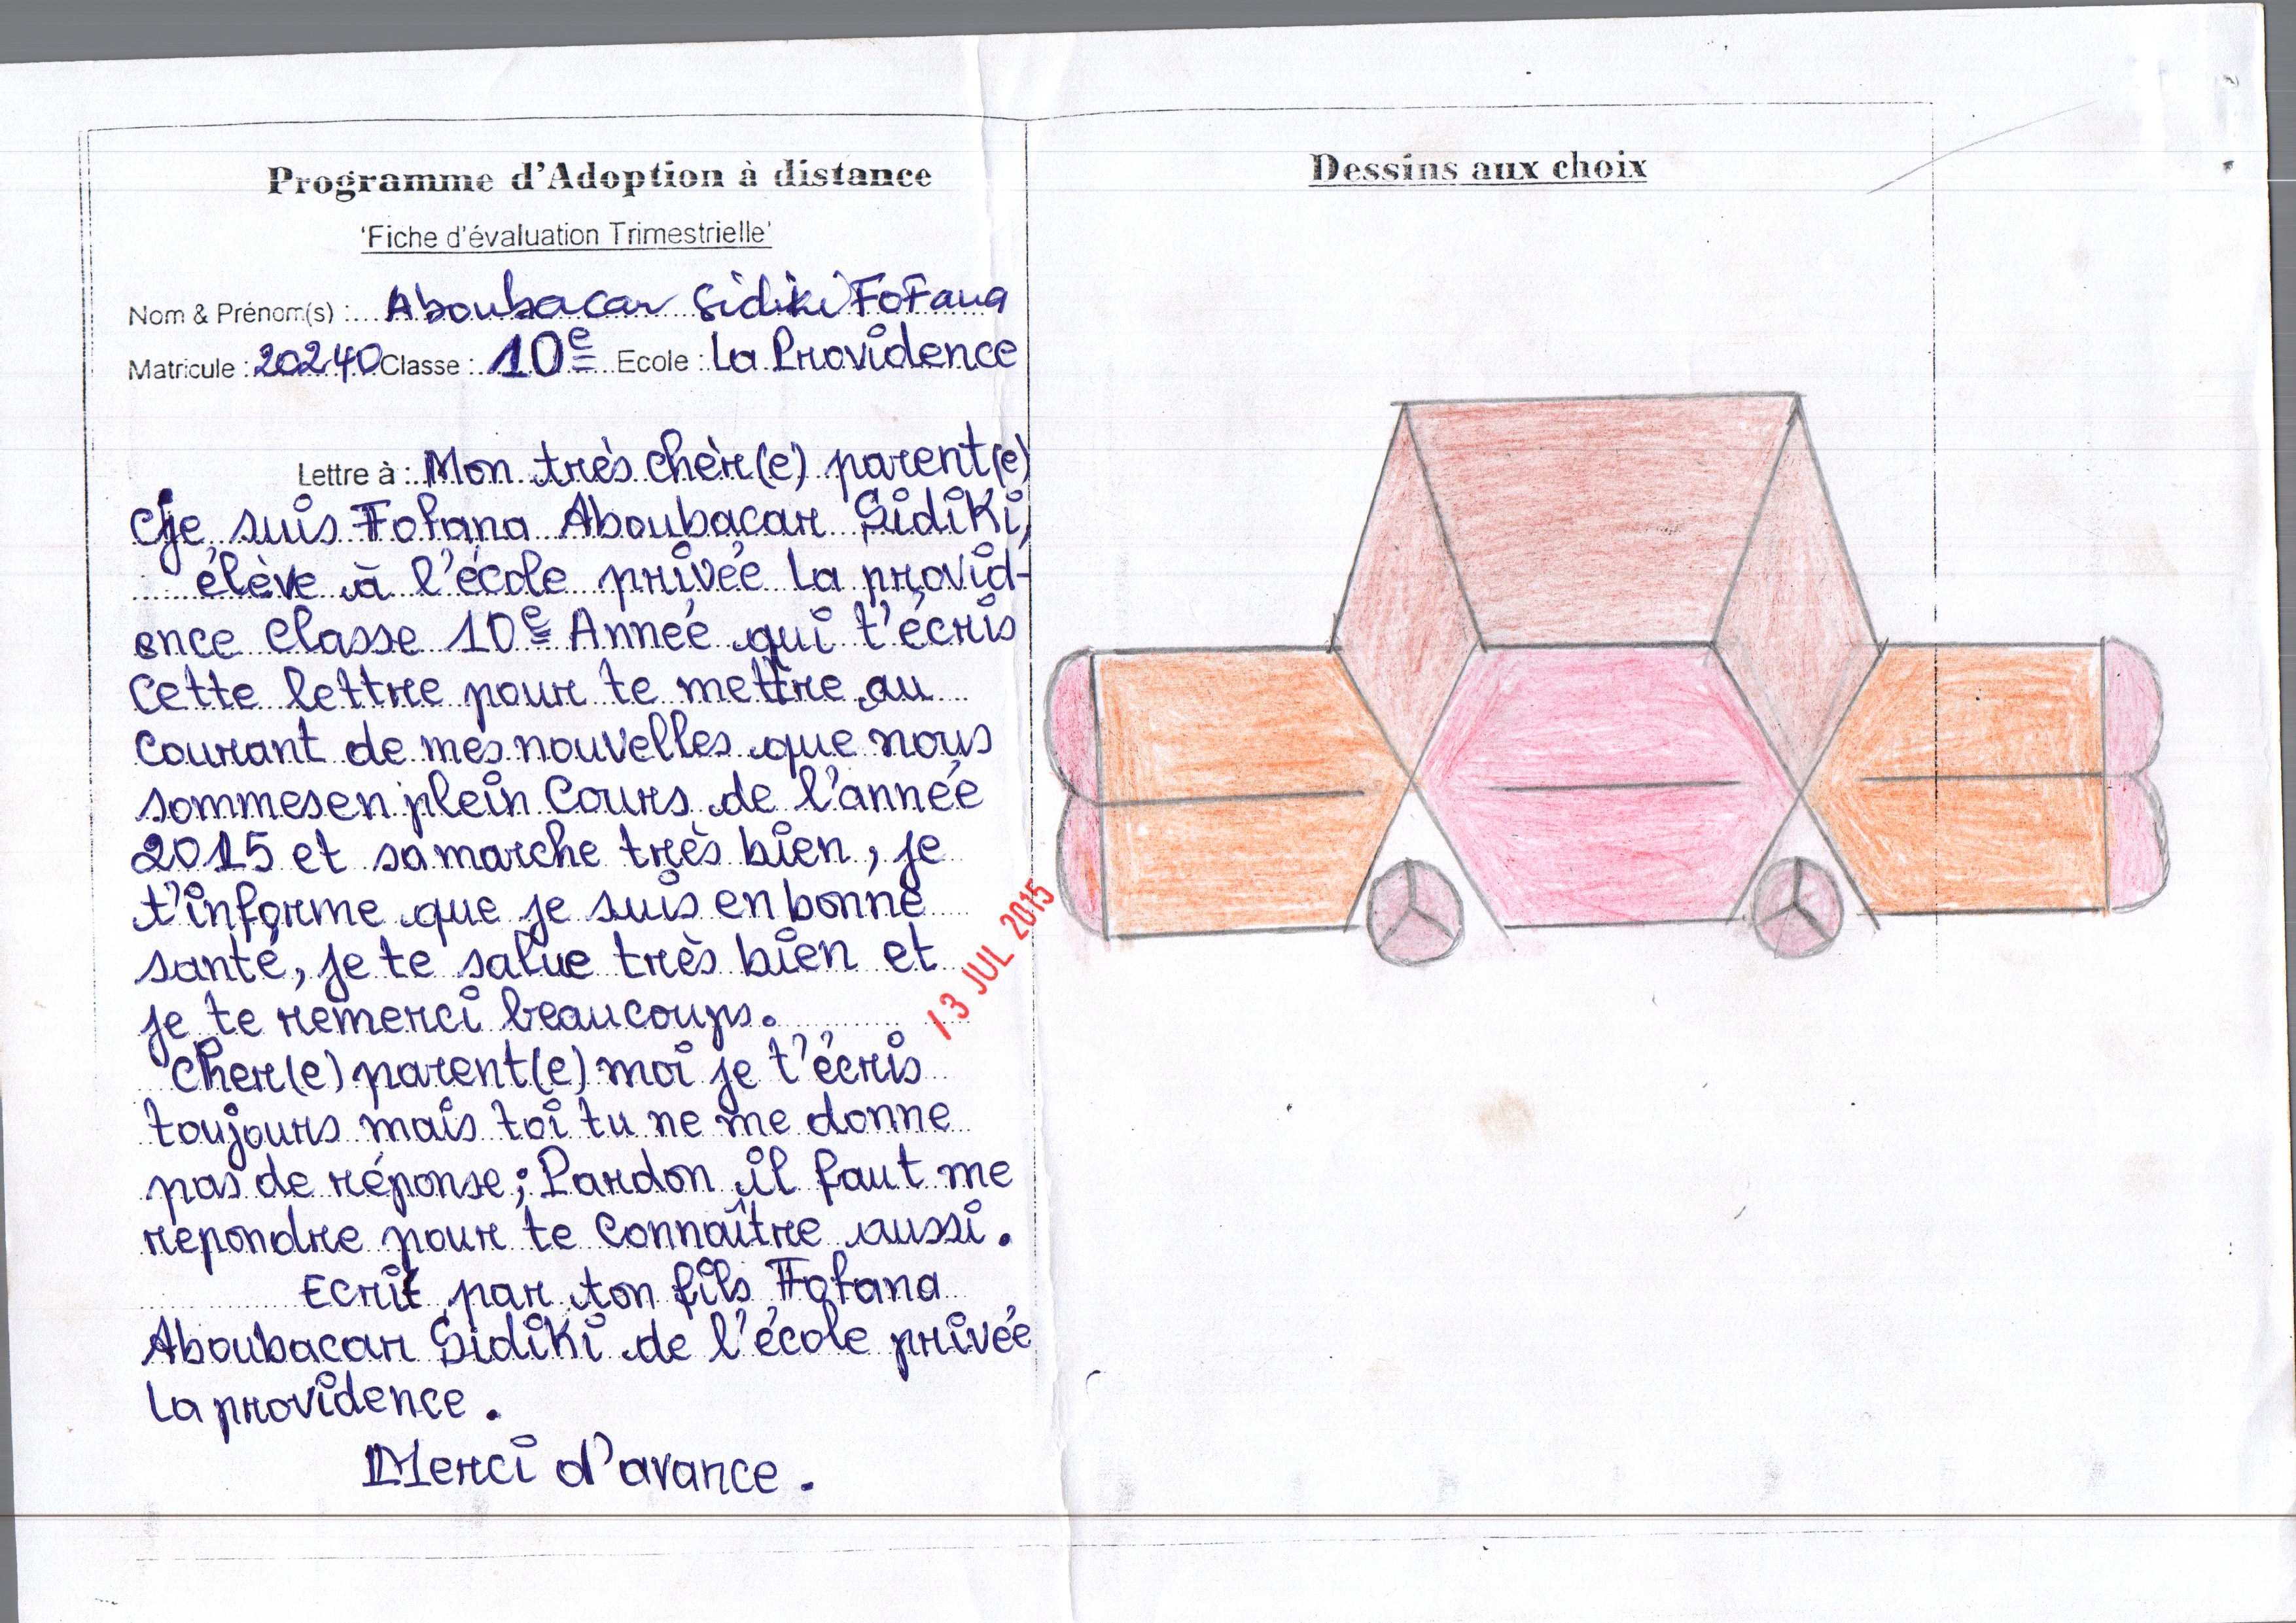 Programme d'Adoption à distance
'Fiche d'évaluation Trimestrielle'
Nom & Prénom(s) : Aboubacar Sidiki Fofana
Matricule : 20240 Classe : 10e Ecole : La Providence
Lettre à : Mon très chèr(e) parent(e)
Je suis Fofana Aboubacar Sidiki,
élève à l'école privée La provid-
ence classe 10e Année qui t'écris
cette lettre pour te mettre au
courant de mes nouvelles que nous
sommes en plein cours de l'année
2015 et sa marche très bien, je
t'informe que je suis en bonne
santé, je te salue très bien et
je te remerci beaucoups.
Cher(e) parent(e) moi je t'écris
toujours mais toi tu ne me donne
pas de réponse; Pardon il faut me
repondre pour te connaître aussi.
Ecrit par ton fils Fofana
Aboubacar Sidiki de l'école privée
La providence.
Merci d'avance.
13 JUL 2015
Dessins aux choix